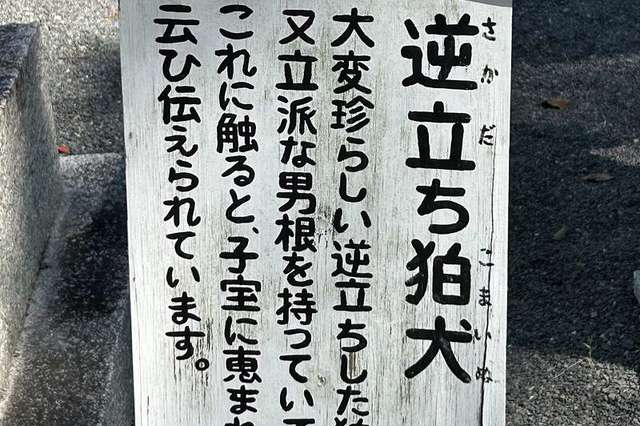 逆立ち狛犬
さかだ こまいぬ
大変珍らしい逆立ちした狛
又立派な男根を持っていて
これに触ると、子宝に恵まれ
云ひ伝えられています。